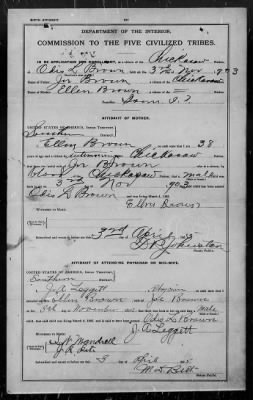 BIRTH AFFIDAVIT.
DEPARTMENT OF THE INTERIOR,
COMMISSION TO THE FIVE CIVILIZED TRIBES.
IN RE APPLICATION FOR ENROLLMENT, as a citizen of the Chickasaw Nation,
of Odis L. Brown, born on the 3rd day of Nov, 1903
Name of Father: Joe Brown a citizen of the Chickasaw Nation.
Name of Mother: Ellen Brown a citizen of the Nation.
AFFIDAVIT OF MOTHER.
UNITED STATES OF AMERICA, INDIAN TERRITORY,
Southern District.
I, Ellen Brown, on oath state that I am 38
years of age and a citizen by intermarriage, of the Chickasaw Nation;
that I am the lawful wife of Joe Brown, who is a citizen, by
blood of the Chickasaw Nation; that a male child was
born to me on 3rd day of Nov, 1903; that said child has been named
Odis L Brown, and was living March 4, 1905.
Ellen Brown
WITNESSES TO MARK:
Subscribed and sworn to before me this 3rd day of April, 1905
Notary Public.
AFFIDAVIT OF ATTENDING PHYSICIAN OR MID-WIFE.
UNITED STATES OF AMERICA, INDIAN TERRITORY,
Southern District.
I, J A Leggett, a Physician, on oath state that I attended on
Mrs. Ellen Brown, wife of Joe Brown on the
3rd day of November, 1903; that there was born to her on said date a male
child; that said child was living March 4, 1905, and is said to have been named Odis L Brown
J. A. Leggett
WITNESSES TO MARK:
Subscribed and sworn to before me this 3 day of April, 1905
Notary Public.